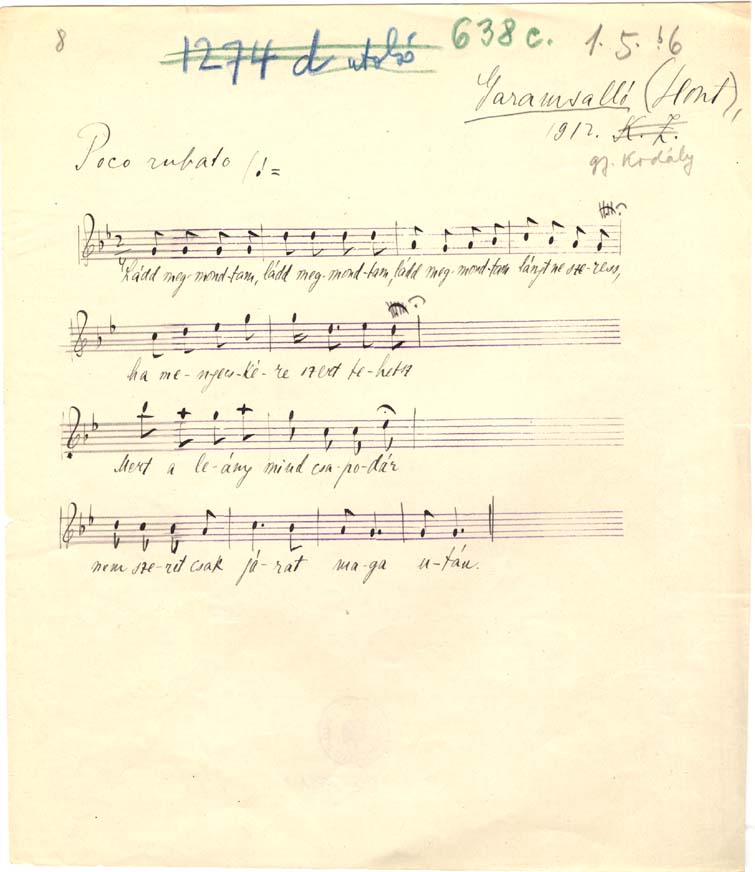 8
1274 d utolsó
638 c.
1. 5. b6
Garamsalló (Hont),
1912. K. Z.
gy. Kodály
Poco rubato
Ládd meg-mond-tam, ládd meg-mond-tam, ládd meg-mond-tam lányt ne sze-ress,
ha me-nyecs-ké-re szert te-hetsz
Mert a le-ány mind csa-po-dár
nem sze-ret csak já-rat ma-ga u-tán.